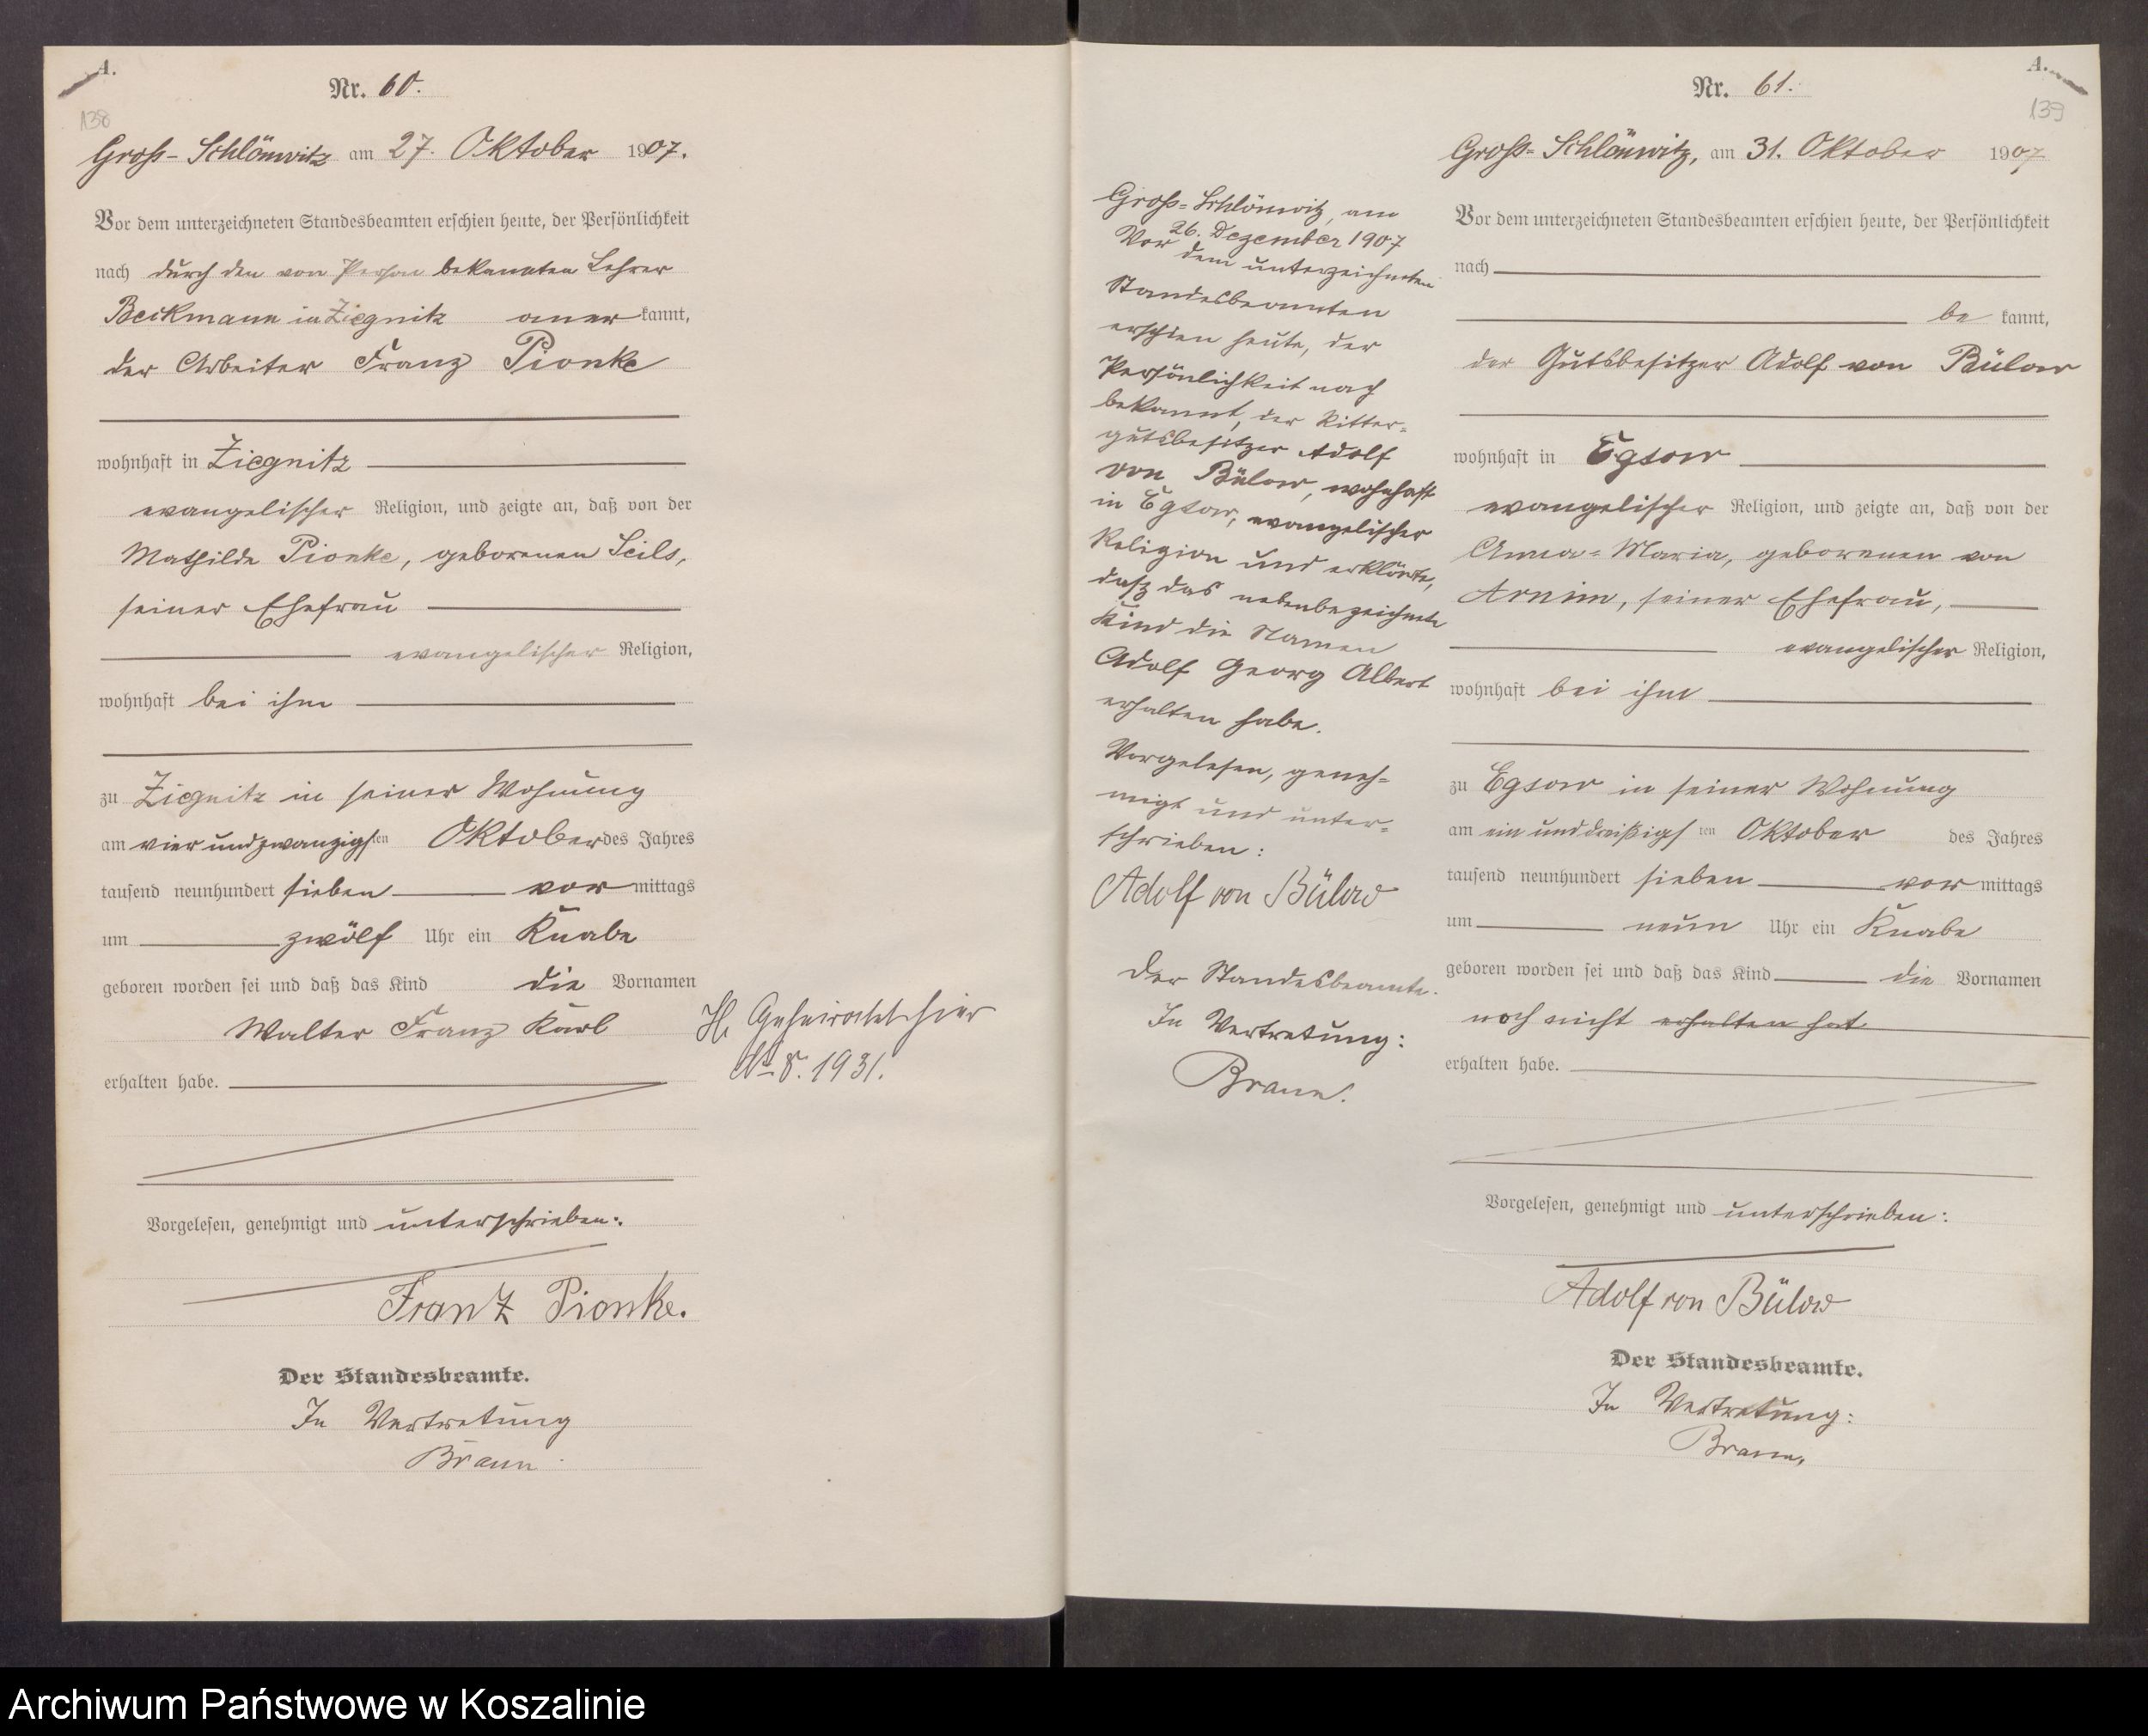 A.
138
Nr. 60.
Groß-Schlönwitz am 27. Oktober 1907.
Vor dem unterzeichneten Standesbeamten erschien heute, der Persönlichkeit
nach durch den von Person bekannten Lehrer
Beckmann in Ziegnitz anerkannt,
der Arbeiter Franz Pionke
wohnhaft in Ziegnitz
evangelischer Religion, und zeigte an, daß von der
Mathilde Pionke, geborenen Seils,
seiner Ehefrau
evangelischer Religion,
wohnhaft bei ihm
zu Ziegnitz in seiner Wohnung
am vierundzwanzigsten Oktober des Jahres
tausend neunhundert sieben vormittags
um zwölf Uhr ein Knabe
geboren worden sei und daß das Kind die Vornamen
Walter Franz Karl
erhalten habe.
H. Geheiratet hier
No 8. 1931.
Vorgelesen, genehmigt und unterschrieben:
Franz Pionke.
Der Standesbeamte.
In Vertretung
Braun
A.
139
Nr. 61.
Groß-Schlönwitz, am 31. Oktober 1907
Vor dem unterzeichneten Standesbeamten erschien heute, der Persönlichkeit
nach
bekannt,
der Gutsbesitzer Adolf von Bülow
wohnhaft in Egsow
evangelischer Religion, und zeigte an, daß von der
Anna-Maria, geborenen von
Arnim, seiner Ehefrau,
evangelischer Religion,
wohnhaft bei ihm
zu Egsow in seiner Wohnung
am einunddreißigsten Oktober des Jahres
tausend neunhundert sieben vormittags
um neun Uhr ein Knabe
geboren worden sei und daß das Kind die Vornamen
noch nicht erhalten hat
erhalten habe.
Vorgelesen, genehmigt und unterschrieben:
Adolf von Bülow
Der Standesbeamte.
In Vertretung:
Braun.
Groß-Schlönwitz, am
26. Dezember 1907
Vor dem unterzeichneten
Standesbeamten
erschien heute, der
Persönlichkeit nach
bekannt, der Ritter-
gutsbesitzer Adolf
von Bülow, wohnhaft
in Egsow, evangelischer
Religion und erklärte,
daß das nebenbezeichnete
Kind die Namen
Adolf Georg Albert
erhalten habe.
Vorgelesen, geneh-
migt und unter-
schrieben:
Adolf von Bülow
Der Standesbeamte.
In Vertretung:
Braun.
Archiwum Państwowe w Koszalinie